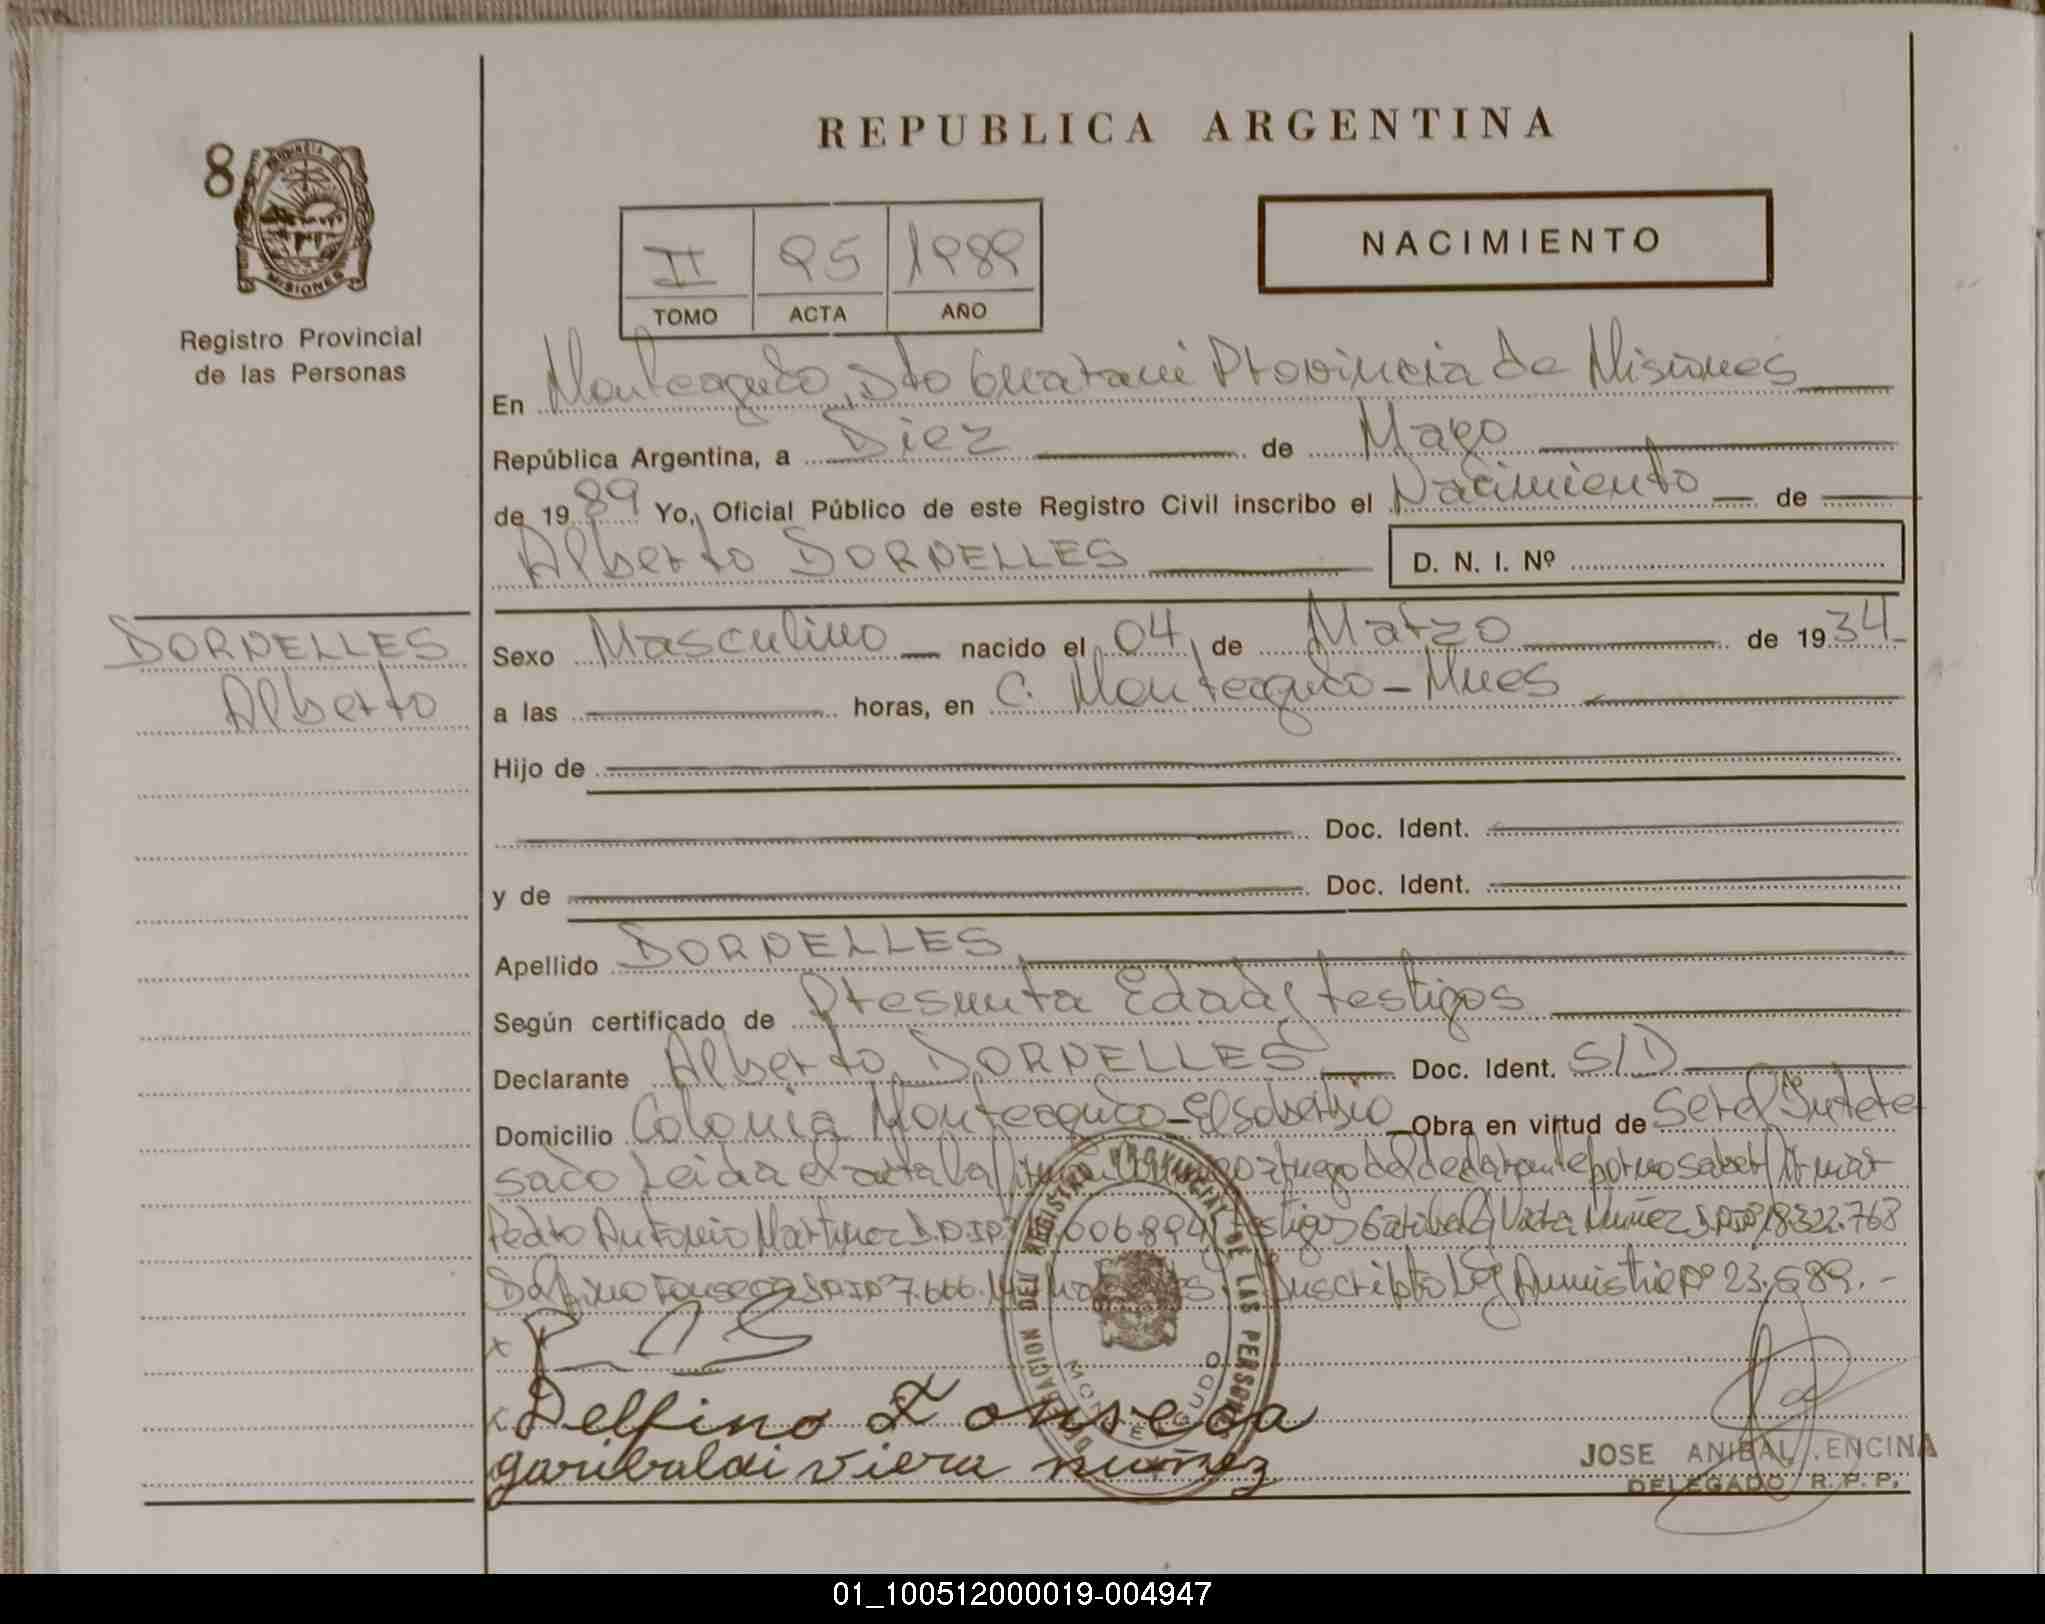 REPUBLICA ARGENTINA
8
PROVINCIA DE
MISIONES
Registro Provincial
de las Personas
II 95 1989
TOMO ACTA AÑO
NACIMIENTO
En Monteagudo, Dto Guarani Provincia de Misiones
República Argentina, a Diez de Mayo
de 1989 Yo, Oficial Público de este Registro Civil inscribo el Nacimiento de
Alberto DORNELLES D. N. I. Nº
DORNELLES
Alberto
Sexo Masculino nacido el 04 de Marzo de 1934
a las horas, en C. Monteagudo - Mnes
Hijo de
Doc. Ident.
y de Doc. Ident.
Apellido DORNELLES
Según certificado de Presunta Edad y testigos
Declarante Alberto DORNELLES Doc. Ident. S/D
Domicilio Colonia Monteagudo - El soberbio Obra en virtud de Ser el Intere
sado Leida el acta la a ruego del declarante por no saber firmar
Pedro Antonio Martinez D.N.I.Nº 606.894 testigos Garibaldi Viera Nuñez D.N.I.Nº 18.322.768
Delfino Fonseca D.N.I Nº 7.666. Inscripto Ley Amnistia Nº 23.689.-
x
x Delfino Fonseca
garibaldi viera nuñez
DELEGACION DEL REGISTRO PROVINCIAL DE LAS PERSONAS
MONTEAGUDO
JOSE ANIBAL ENCINA
DELEGADO R. P. P.
01_100512000019-004947